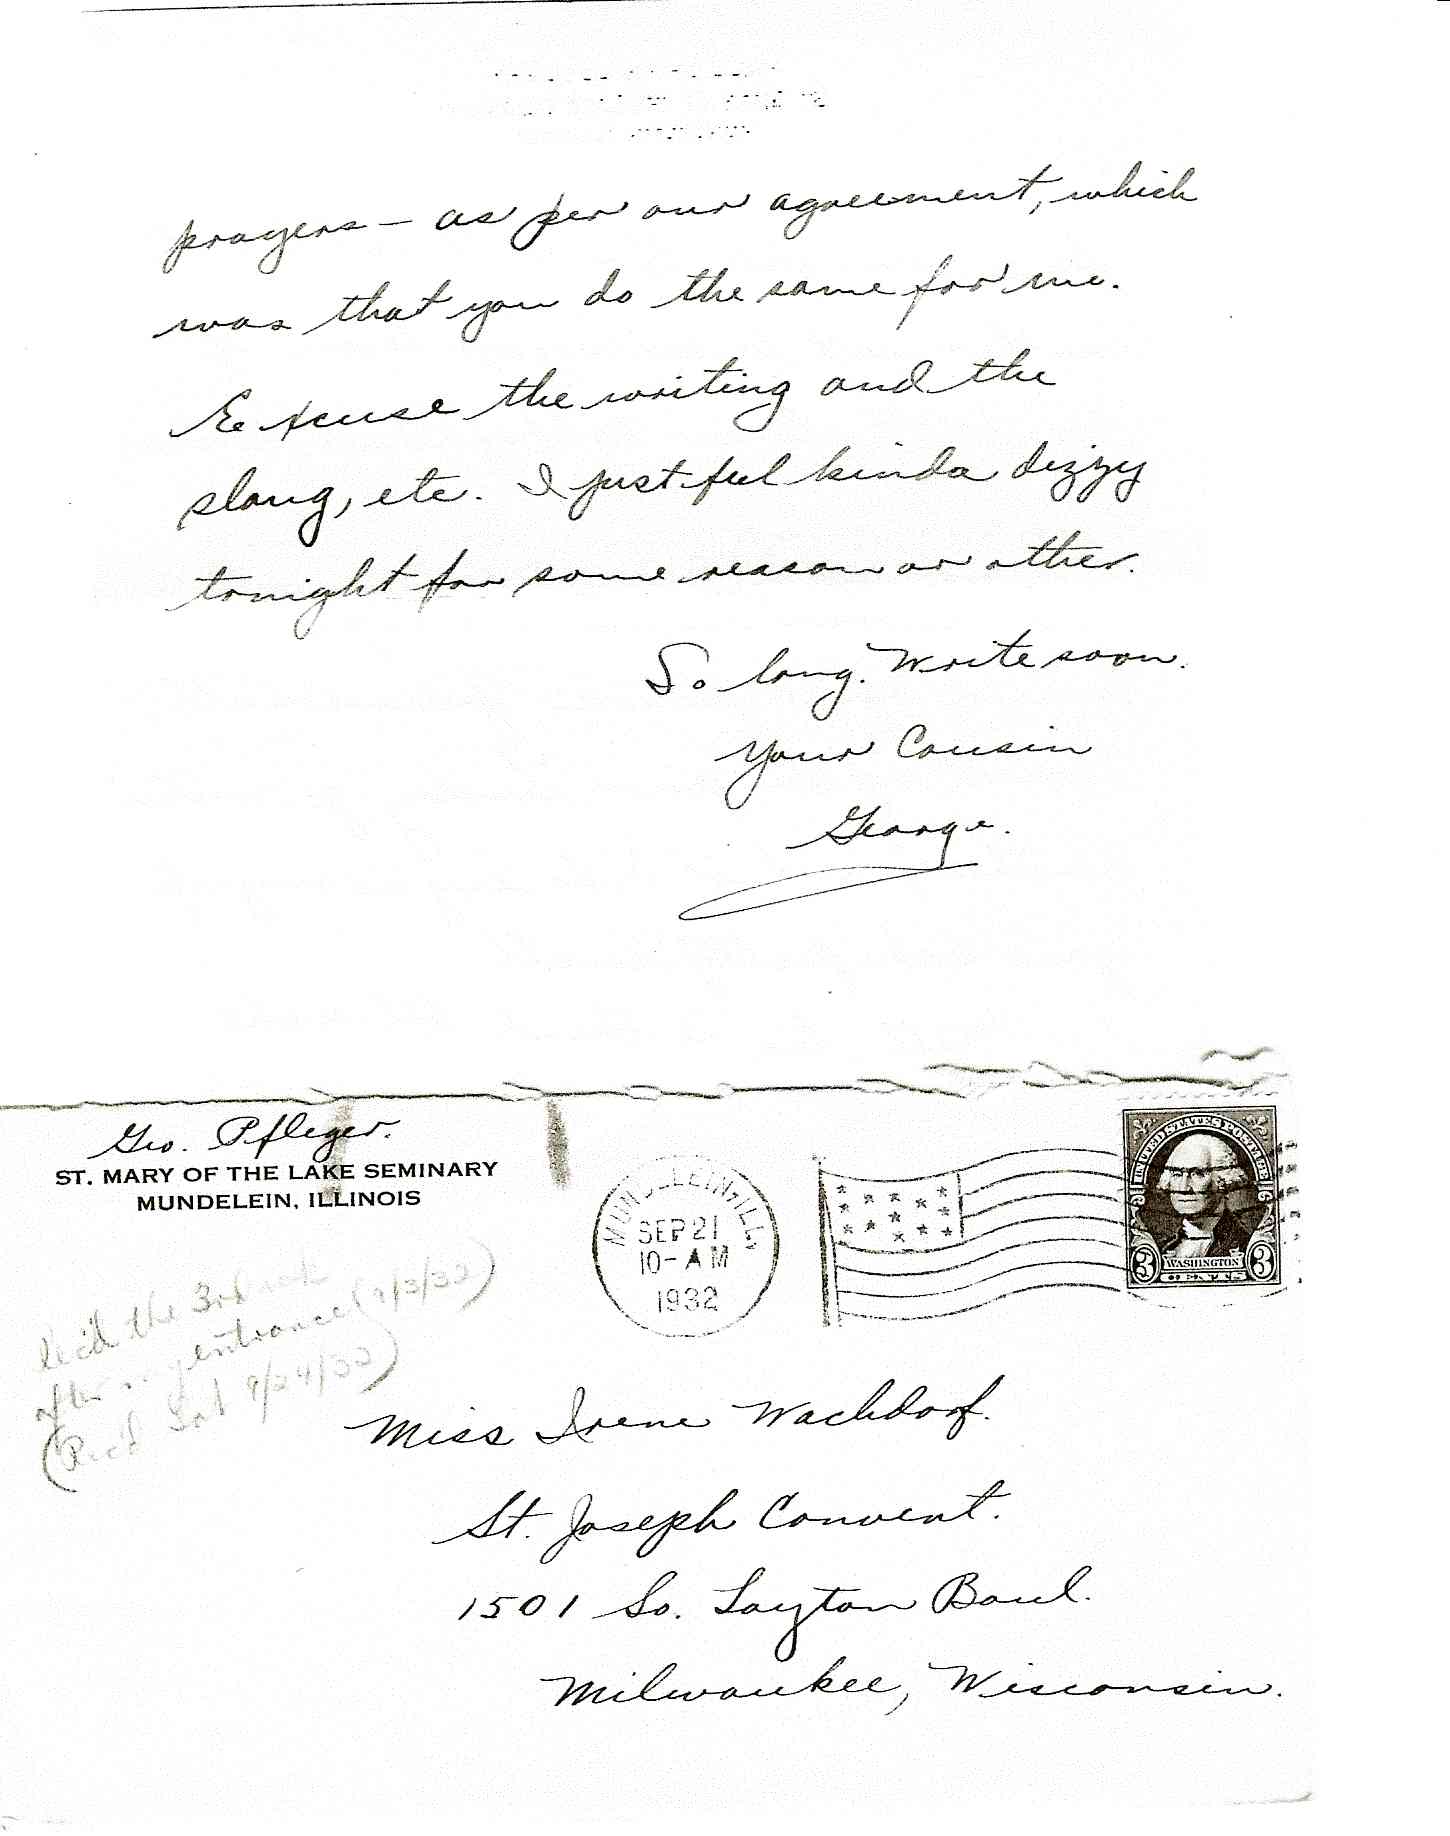 prayers – as per our agreement, which
was that you do the same for me.
Excuse the writing and the
slang, etc. I just feel kinda dizzy
tonight for some reason or other.
So long. Write soon.
Your Cousin
George.
Geo. Pfleger.
ST. MARY OF THE LAKE SEMINARY
MUNDELEIN, ILLINOIS
MUNDELEIN, ILL.
SEP 21
10 - AM
1932
UNITED STATES POSTAGE
3 WASHINGTON 3
CENTS
Rec'd the 3rd wk
after my entrance (9/3/32)
(Rec'd Sat 9/24/32)
Miss Irene Wachdorf.
St. Joseph Convent.
1501 So. Layton Boul.
Milwaukee, Wisconsin.